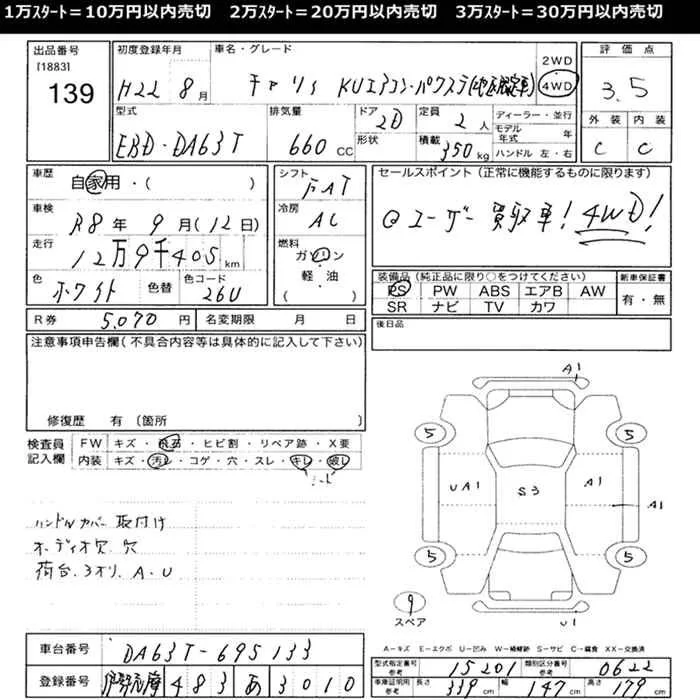 1万ｽﾀｰﾄ＝10万円以内売切　2万ｽﾀｰﾄ＝20万円以内売切　3万ｽﾀｰﾄ＝30万円以内売切
出品番号
[1883]
139
初度登録年月
H22 8月
車名・グレード
キャリィ KUエアコン・パワステ
2WD
4WD
評価点
3.5
外装 内装
C C
型式
EBD-DA63T
排気量
660 CC
ドア 2D
形状
定員 2人
積載 350 kg
ディーラー・並行
モデル年式 年
ハンドル 左・右
車歴
自家用・( )
シフト
FAT
セールスポイント (正常に機能するものに限ります)
@ユーザー買取車! 4WD!
車検
R8年 9月(12日)
冷房
AC
走行
12万9千405 km
燃料
ガソリン
軽・油
( )
色
ホワイト
色替
色コード
26U
装備品 (純正品に限り○をつけてください)
PS PW ABS エアB AW
SR ナビ TV カワ
新車保証書
有・無
R券 5,070円
名変期限 月 日
後日品
注意事項申告欄 (不具合内容等は具体的に記入して下さい)
修復歴 有 [箇所
検査員記入欄
FW キズ・飛石・ヒビ割・リペア跡・X要
内装 キズ・汚レ・コゲ・穴・スレ・キレ・破レ
シート
ハンドルカバー取付け
オーディオ欠.穴
荷台.3オリ.A.U
A1
5
5
UA1
S3
A1
A1
5
5
9
スペア
U1
A－キズ E－エクボ U－凹み W－補修跡 S－サビ C－腐食 XX－交換済
車台番号
DA63T-695133
登録番号
483 あ 3010
型式指定番号 参考
15201
類別区分番号 参考
0622
車庫証明用 参考
長さ 339 cm
幅 147 cm
高さ 179 cm